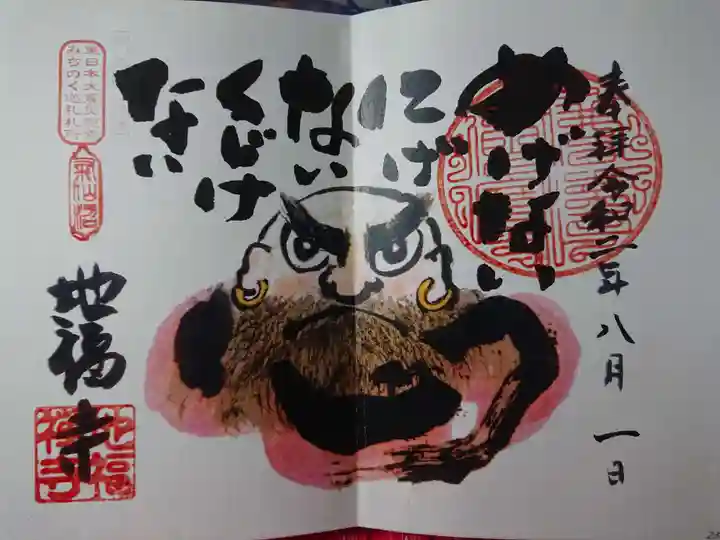 奉拝令和二年八月一日
めげない
にげ
ない
くじけ
ない
東日本大震災慰霊
みちのく巡礼札所
気仙沼
地福寺
地福
禅寺